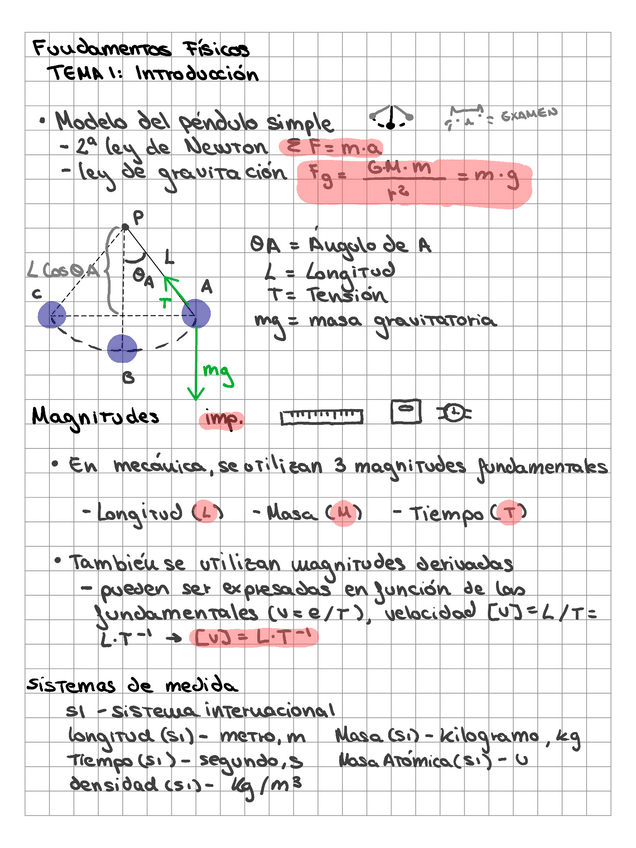 Fundamentos Físicos
TEMA 1: Introducción
• Modelo del péndulo simple
= EXAMEN
- 2ª ley de Newton Σ F = m·a
- ley de gravitación Fg = G·M·m / r² = m·g
P
L cos θA
θA
L
T
A
C
B
mg
θA = Ángulo de A
L = Longitud
T = Tensión
mg = masa gravitatoria
Magnitudes imp.
• En mecánica, se utilizan 3 magnitudes fundamentales
- Longitud (L) - Masa (M) - Tiempo (T)
• También se utilizan magnitudes derivadas
- pueden ser expresadas en función de las
fundamentales (v = e/T), velocidad [v] = L/T =
L·T⁻¹ → [v] = L·T⁻¹
Sistemas de medida
SI - sistema internacional
longitud (SI) - metro, m Masa (SI) - kilogramo, kg
Tiempo (SI) - segundo, s Masa Atómica (SI) - u
densidad (SI) - kg/m³